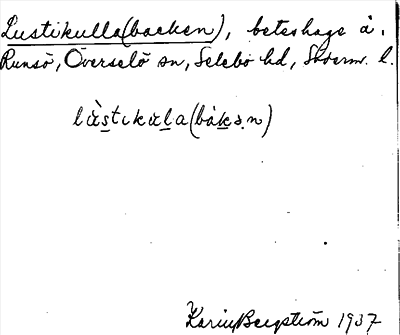 Lustikulla(backen), beteshage å.
Runsö, Överselö sn, Selebo hd, Söderm. l.
lùstikula(bàkən)
Karin Bergström 1937